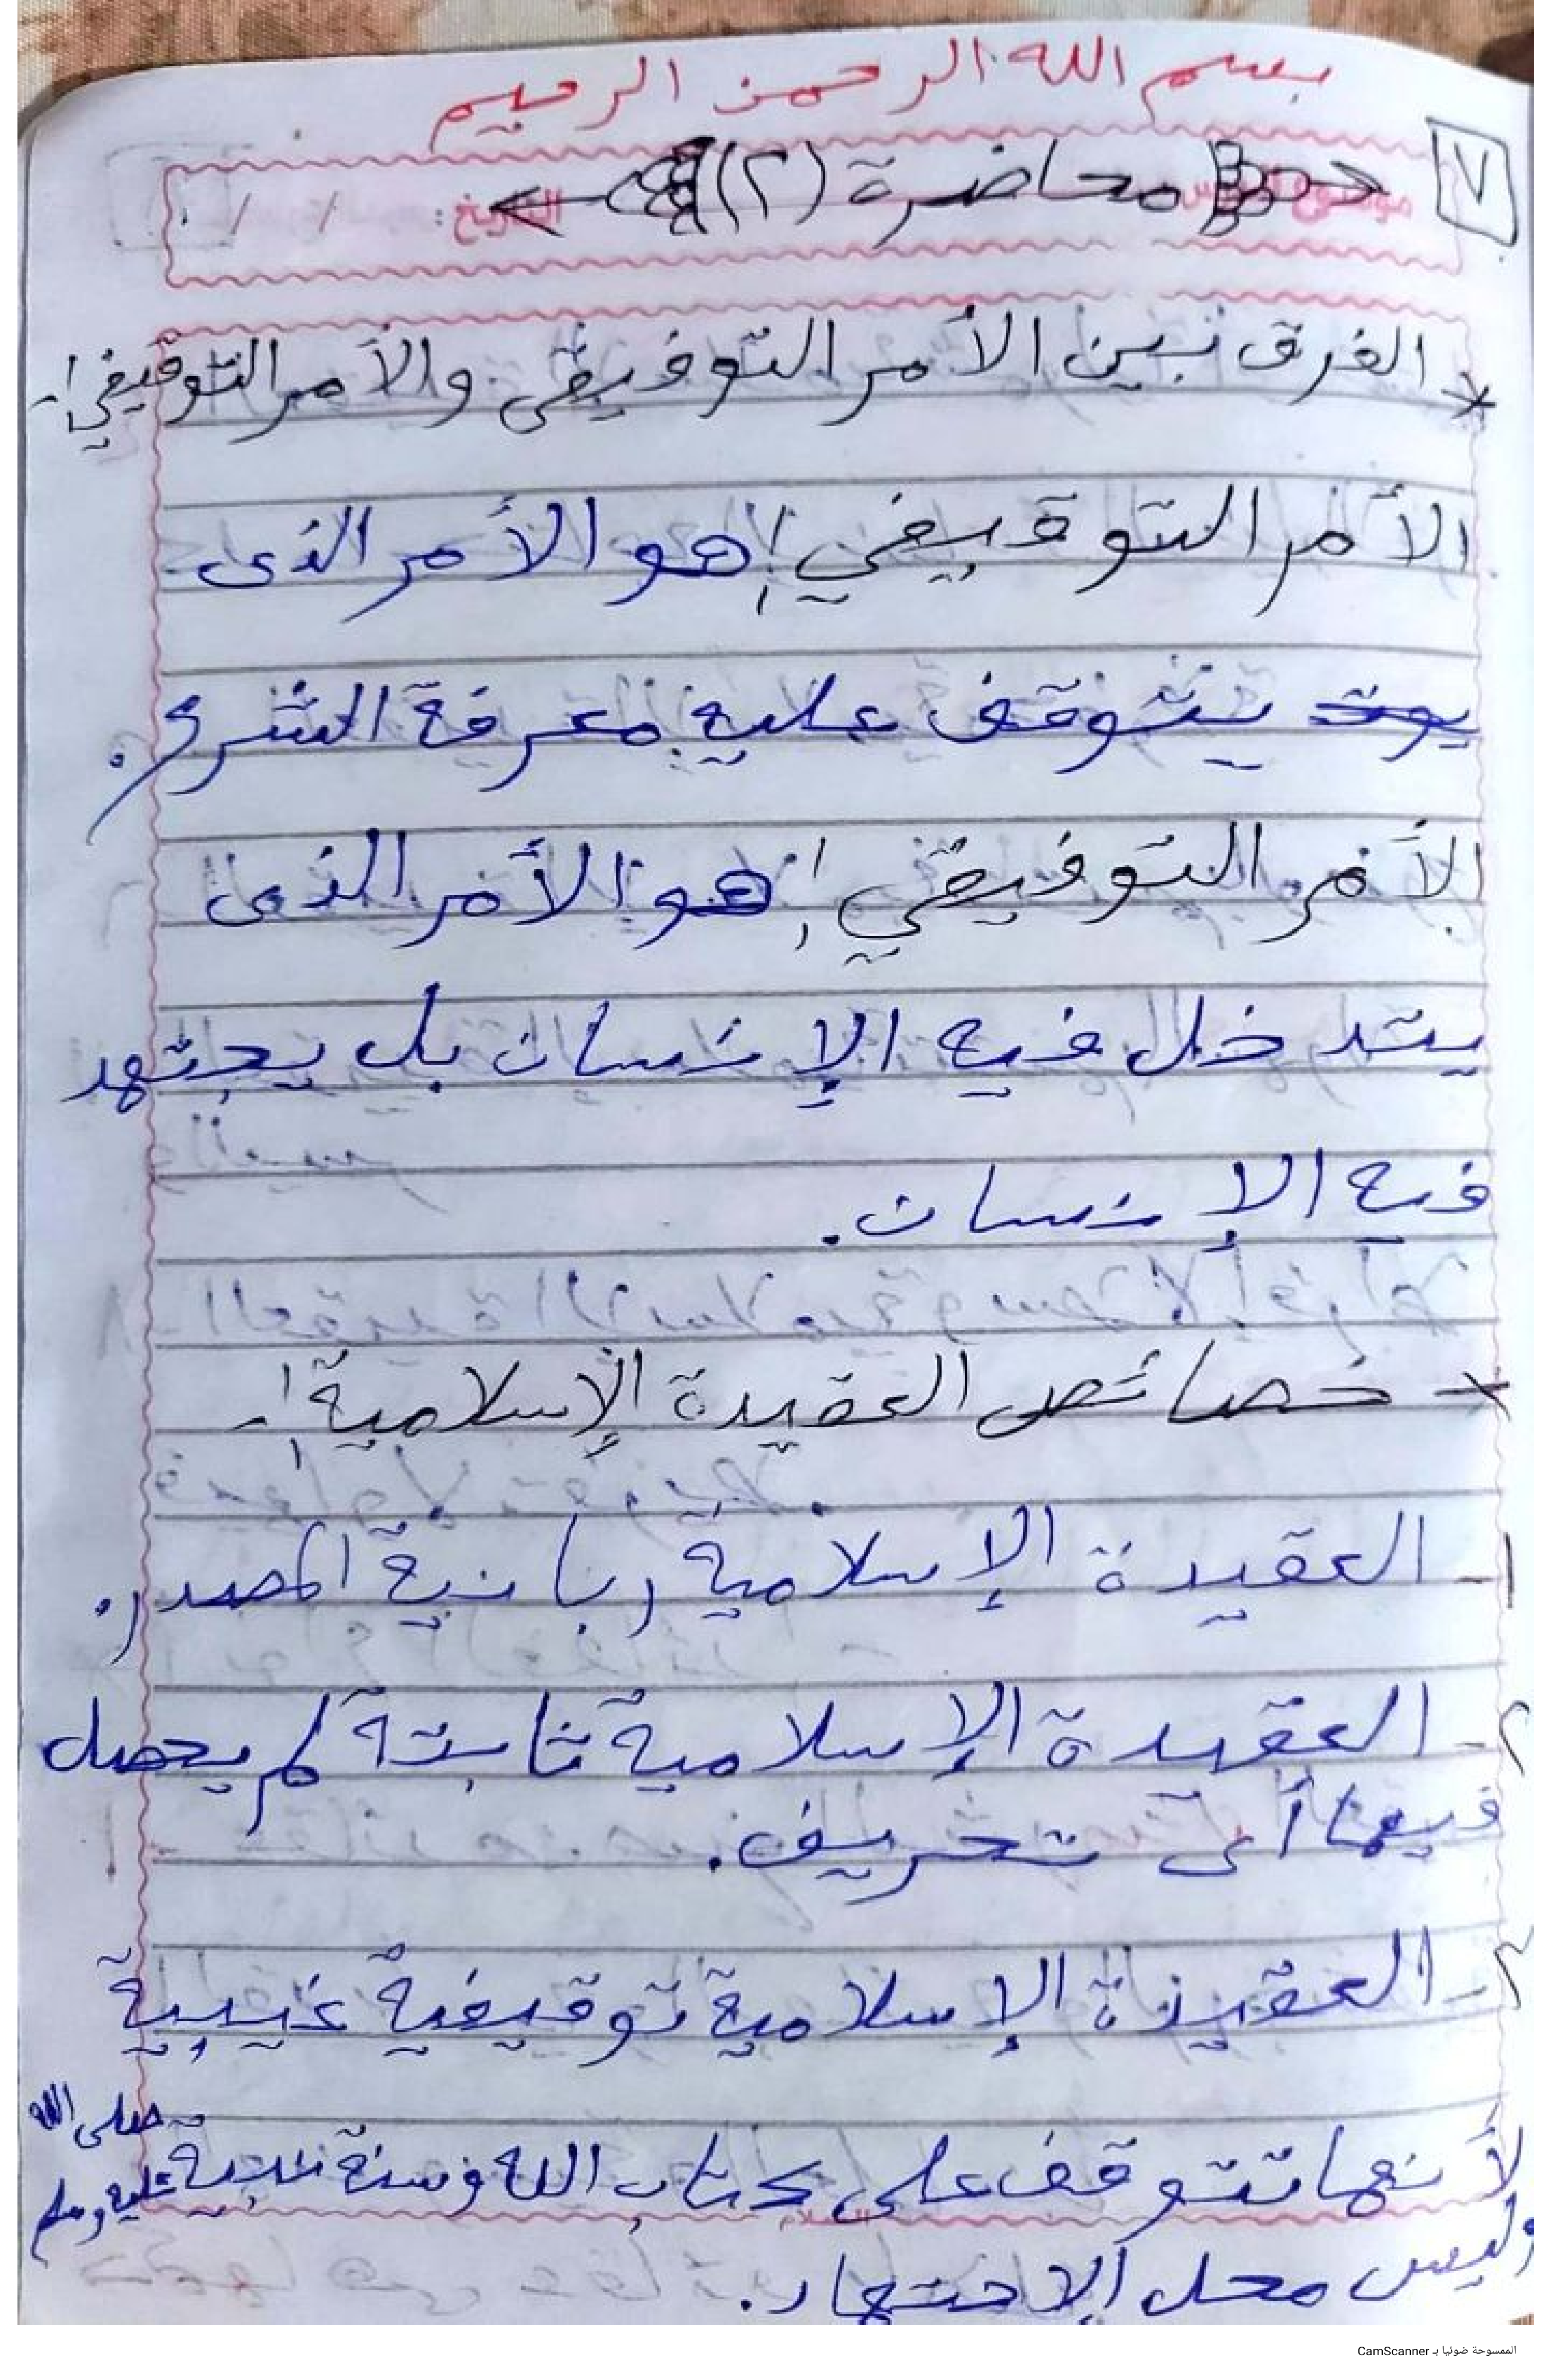 بسم الله الرحمن الرحيم
٧
محاضرة (٢)
التاريخ: / /
* الفرق بين الأمر التوفيقي والأمر التوقيفي:-
الأمر التوقيفي: هو الأمر الذى
يتوقف عليه معرفة الشرع.
الأمر التوفيقي: هو الأمر الذى
يتدخل فيه الإنسان بل يجتهد
فيه الإنسان.
* خصائص العقيدة الإسلامية:-
١- العقيدة الإسلامية ربانية المصدر.
٢- العقيدة الإسلامية ثابتة لم يحصل
فيها أى تحريف.
٣- العقيدة الإسلامية توقيفية غيبية
لأنها تتوقف على كتاب الله وسنة نبيه صلى الله عليه وسلم
وليس محل الاجتهاد.
الممسوحة ضوئيا بـ CamScanner